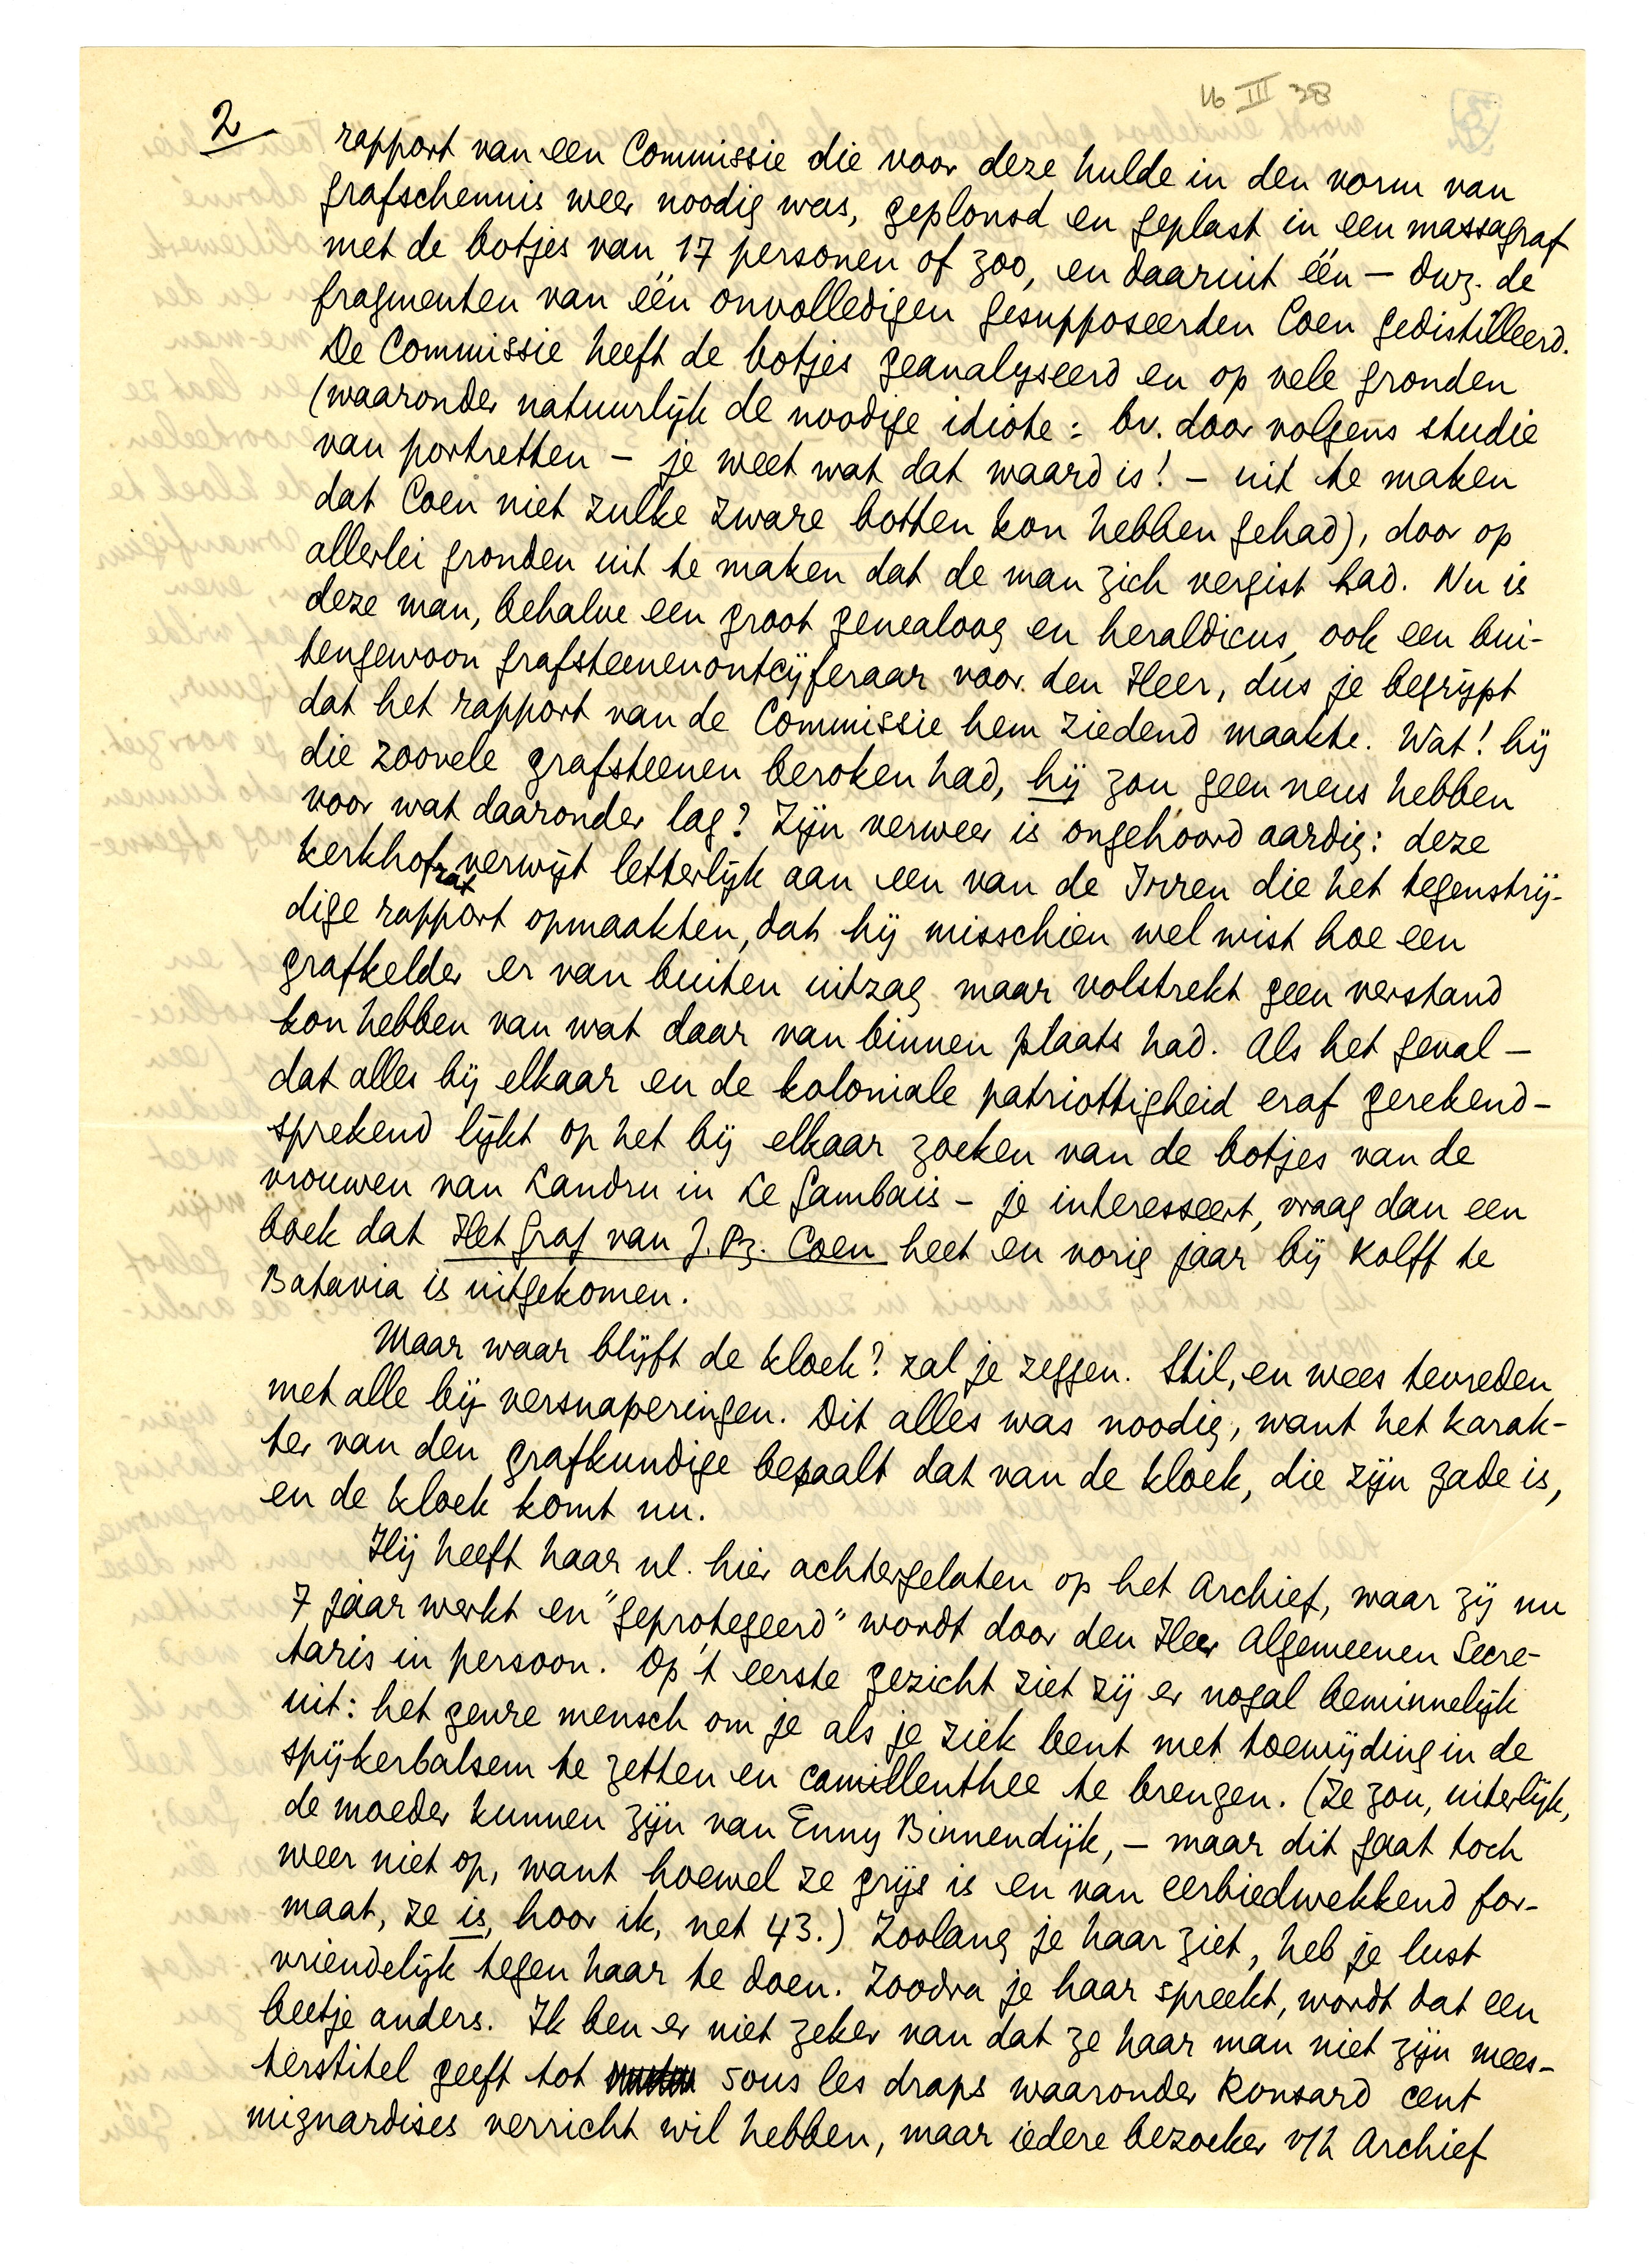 16 III 38
2
rapport van een Commissie die voor deze hulde in den vorm van
grafschennis weer noodig was, geplonsd en geplast in een massagraf
met de botjes van 17 personen of zoo, en daaruit één – dwz. de
fragmenten van één onvolledigen gesupposeerden Coen gedistilleerd.
De Commissie heeft de botjes geanalyseerd en op vele gronden
(waaronder natuurlijk de noodige idiote: bv. door volgens studie
van portretten – je weet wat dat waard is! – uit te maken
dat Coen niet zulke zware botten kon hebben gehad), door op
allerlei gronden uit te maken dat de man zich vergist had. Nu is
deze man, behalve een groot genealoog en heraldicus, ook een bui-
tengewoon grafsteenenontcijferaar voor den Heer, dus je begrijpt
dat het rapport van de Commissie hem ziedend maakte. Wat! hij
die zoovele grafsteenen beroken had, hij zou geen neus hebben
voor wat daaronder lag? Zijn verweer is ongehoord aardig: deze
kerkhofrat verwijt letterlijk aan een van de Irren die het tegenstrij-
dige rapport opmaakten, dat hij misschien wel wist hoe een
grafkelder er van buiten uitzag maar volstrekt geen verstand
kon hebben van wat daar van binnen plaats had. Als het geval –
dat alles bij elkaar en de koloniale patriottigheid eraf gerekend –
sprekend lijkt op het bij elkaar zoeken van de botjes van de
vrouwen van Landru in Le Gambais – je interesseert, vraag dan een
boek dat Het Graf van J. Pz. Coen heet en vorig jaar bij Kolff te
Batavia is uitgekomen.
Maar waar blijft de kloek? zal je zeggen. Stil, en wees tevreden
met alle bij-versnaperingen. Dit alles was noodig, want het karak-
ter van den grafkundige bepaalt dat van de kloek, die zijn gade is,
en de kloek komt nu.
Hij heeft haar nl. hier achtergelaten op het Archief, waar zij nu
7 jaar werkt en "geprotegeerd" wordt door den Heer Algemeenen Secre-
taris in persoon. Op 't eerste gezicht ziet zij er nogal beminnelijk
uit: het genre mensch om je als je ziek bent met toewijding in de
spijkerbalsem te zetten en camillenthee te brengen. (Ze zou, uiterlijk,
de moeder kunnen zijn van Enny Binnendijk, – maar dit gaat toch
weer niet op, want hoewel ze grijs is en van eerbiedwekkend for-
maat, ze is, hoor ik, net 43.) Zoolang je haar ziet, heb je lust
vriendelijk tegen haar te doen. Zoodra je haar spreekt, wordt dat een
beetje anders. Ik ben er niet zeker van dat ze haar man niet zijn mees-
terstitel geeft tot sous les draps waaronder Ronsard cent
mignardises verricht wil hebben, maar iedere bezoeker v/h Archief